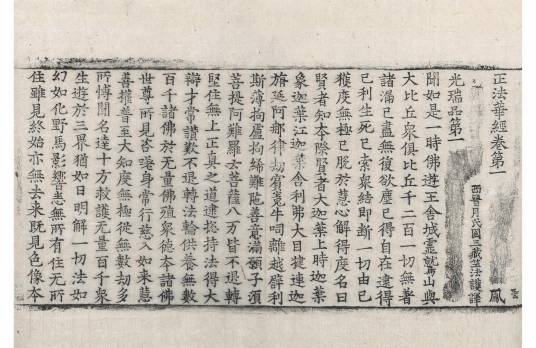 正法華經卷第一
西晉月氏國三藏竺法護譯
鳳
光瑞品第一
聞如是一時佛遊王舍城靈鷲山與
大比丘衆俱比丘千二百一切無著
諸漏已盡無復欲塵已得自在逮得
己利生死已索衆結即斷一切由已
獲度無極已脫於慧心解得度名曰
賢者知本際賢者大迦葉上時迦葉
象迦葉江迦葉舍利弗大目揵連迦
旃延阿那律劫賓㝹牛呞離越譬利
斯薄拘盧拘絺難陁善意滿願子須
菩提阿難羅云菩薩八万皆不退轉
堅住無上正真之道逮揔持法得大
辯才常讚歎不退轉法輪供養無數
百千諸佛於无量佛殖衆德本諸佛
世尊所見咨嗟身常行慈入如來慧
善權普至大知度無極從無數劫多
所博聞名達十方救護无量百千衆
生遊於三界猶如日明解一切法如
幻如化野馬影響悉無所有住无所
住雖見終始亦無去來既見色像本